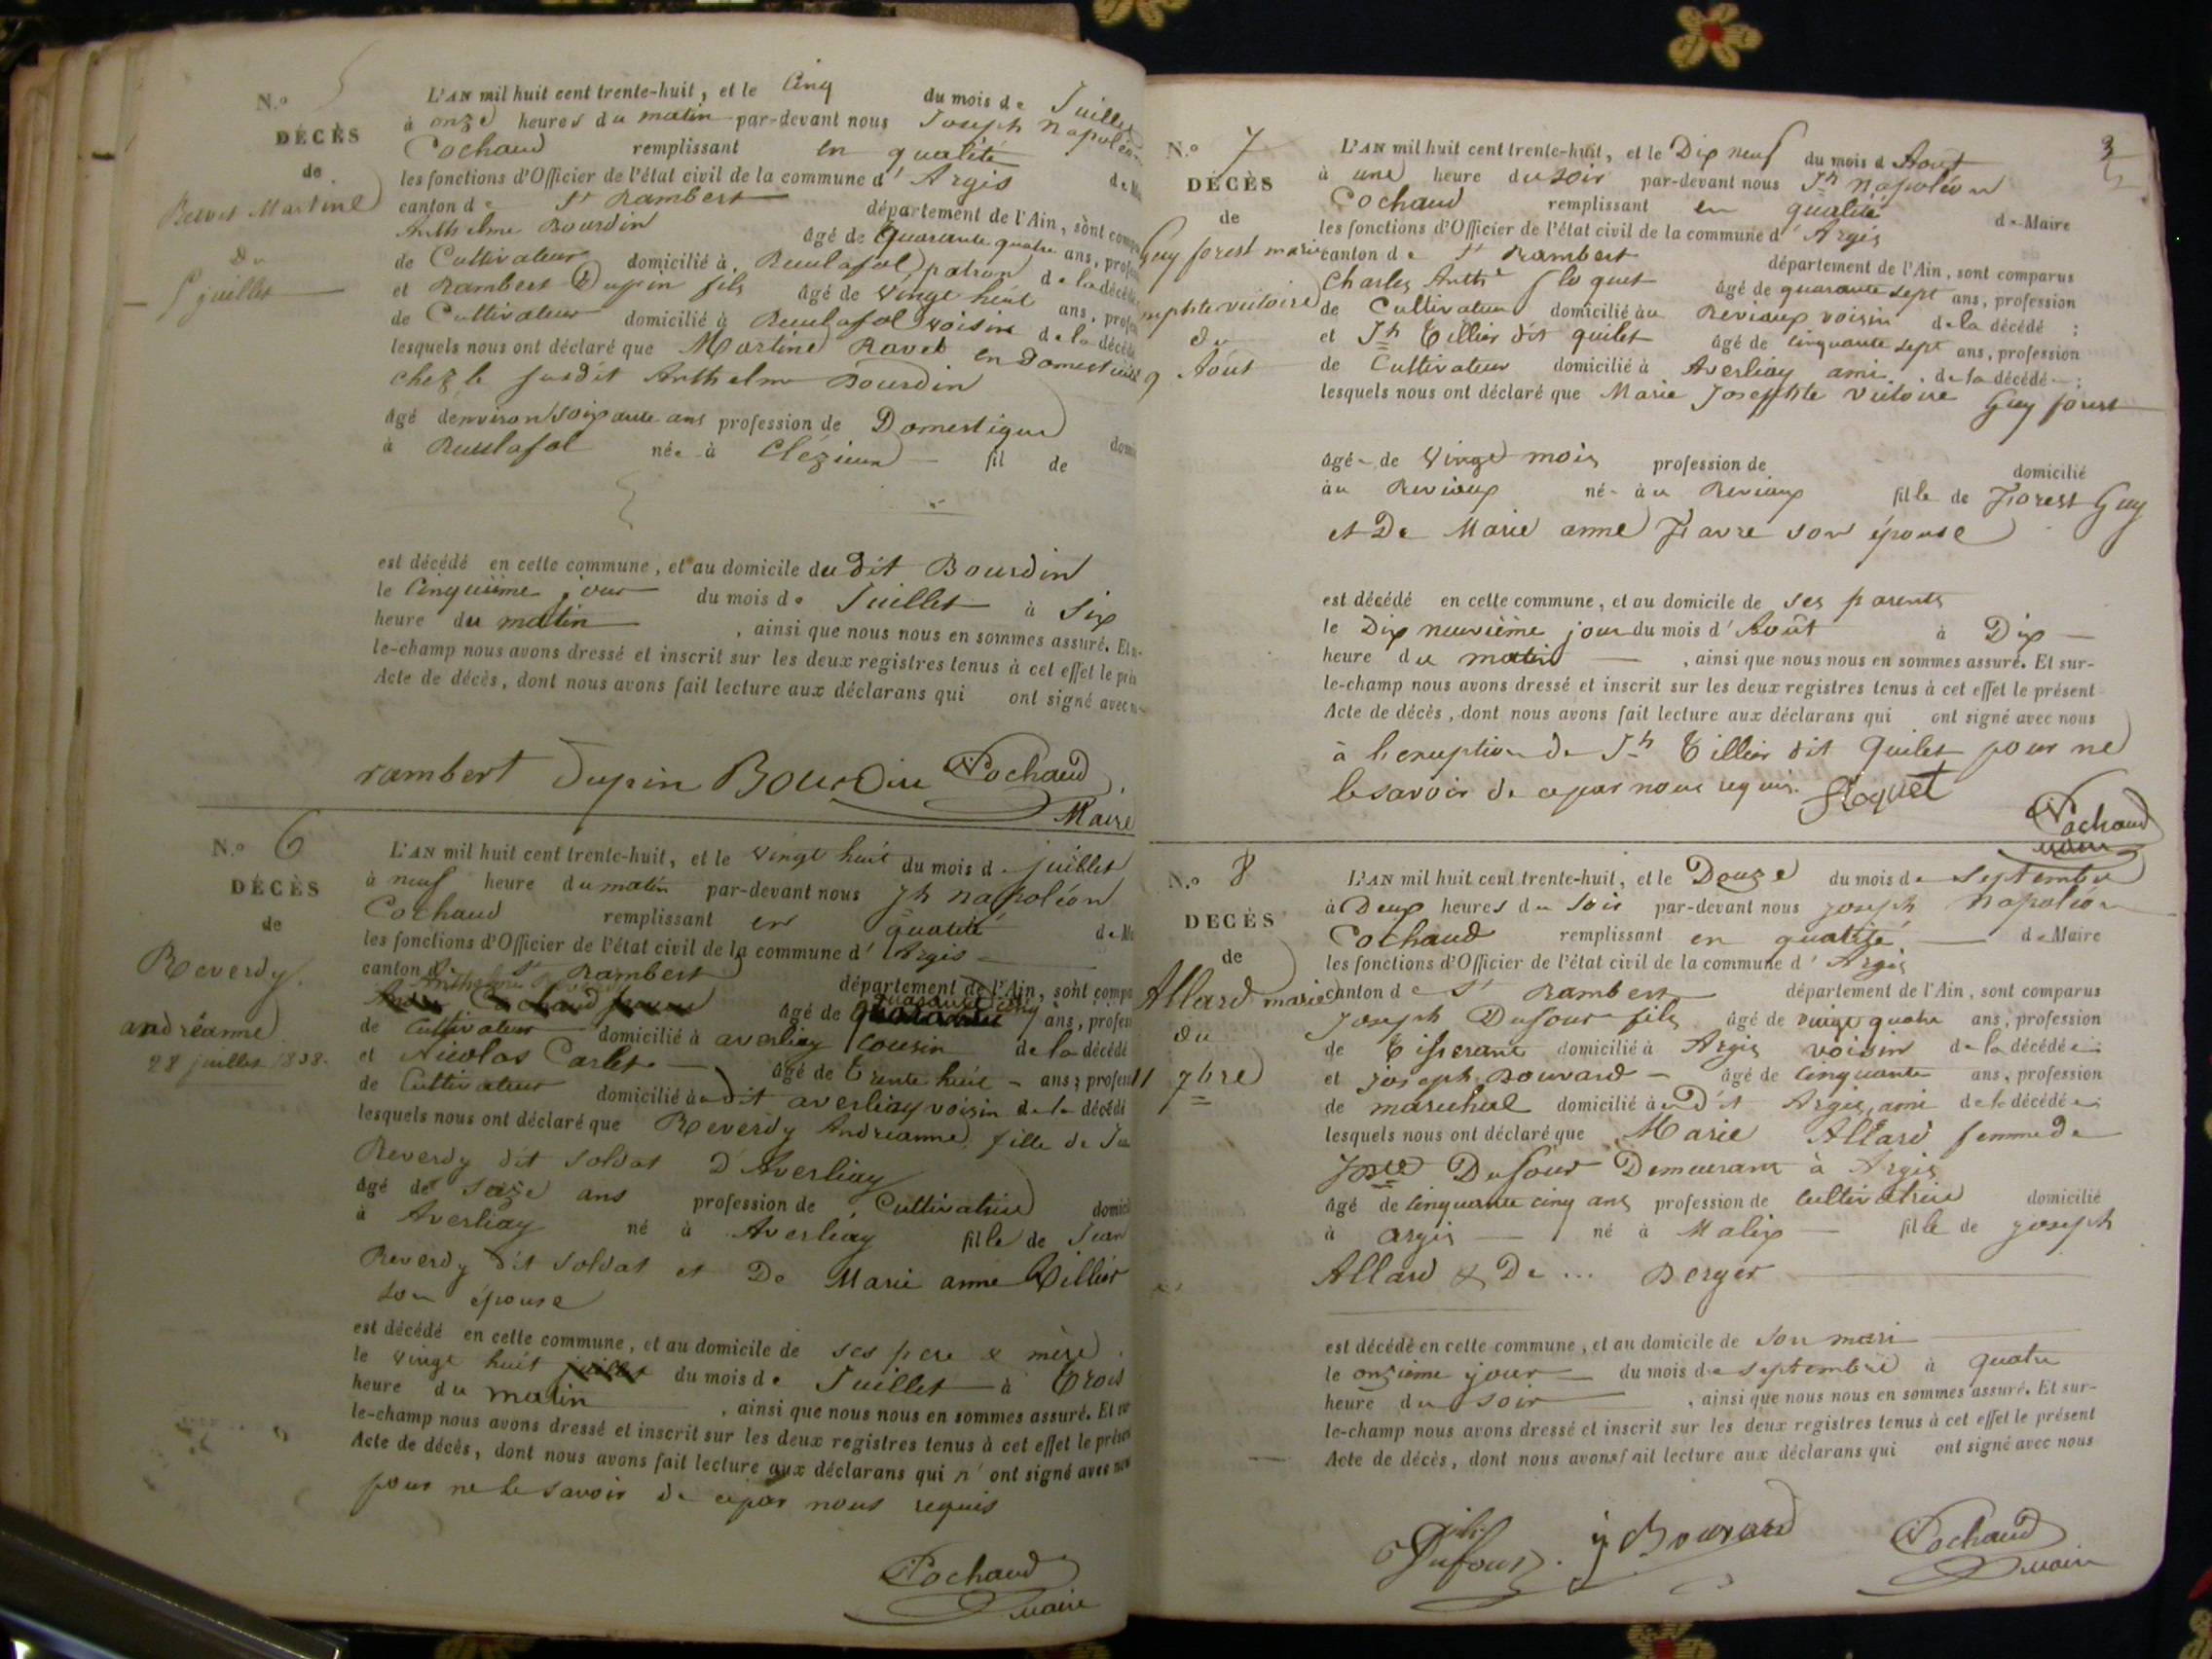 N.o 5
DÉCÈS
de
Ravet Martine
du
5 juillet
L'AN mil huit cent trente-huit, et le Cinq du mois de Juillet
à onze heures du matin par-devant nous Joseph Napoléon
Cochaud remplissant en qualité de
les fonctions d'Officier de l'état civil de la commune d'Argis
canton de St Rambert département de l'Ain, sont
Anthelme Bourdin âgé de Quarante quatre ans,
de Cultivateur domicilié à patron de la
et Rambert Dupin fils âgé de Vingt huit ans,
de Cultivateur domicilié à voisin de la
lesquels nous ont déclaré que Martine Ravet en
chez le susdit Anthelme Bourdin
âgé denviron soixante ans profession de Domestique
à née à fil de
est décédé en cette commune, et au domicile du dit Bourdin
le Cinquième jour du mois de Juillet à Six
heure du matin , ainsi que nous nous en sommes assuré. Et
le-champ nous avons dressé et inscrit sur les deux registres tenus à cet effet le
Acte de décès, dont nous avons fait lecture aux déclarans qui ont signé avec
rambert Dupin Bourdin Cochaud
Maire
N.o 6
DÉCÈS
de
Reverdy
andréanne
28 juillet 1838.
L'AN mil huit cent trente-huit, et le vingt huit du mois d juillet
à neuf heure du matin par-devant nous Jh napoléon
Cochaud remplissant en qualité de
les fonctions d'Officier de l'état civil de la commune d'Argis
canton de St Rambert département de l'Ain, sont
Anthelme âgé de quarante cinq ans,
de Cultivateur domicilié à averliay cousin de la décédé
et Nicolas Carlet âgé de trente huit ans,
de Cultivateur domicilié au dit averliay voisin de la décédé
lesquels nous ont déclaré que Reverdy Andréanne, fille de
Reverdy dit soldat D'Averliay
âgé de seize ans profession de Cultivatrice
à Averliay né à Averliay fille de Jean
Reverdy dit soldat et De Marie anne Tillier
son épouse
est décédé en cette commune, et au domicile de ses pere & mère
le vingt huit juillet du mois de Juillet à trois
heure du matin , ainsi que nous nous en sommes assuré. Et
le-champ nous avons dressé et inscrit sur les deux registres tenus à cet effet le
Acte de décès, dont nous avons fait lecture aux déclarans qui n'ont signé avec
pour ne le savoir de ce par nous requis
Cochaud
maire
3
N.o 7
DÉCÈS
de
Guy forest marie
du
Août
L'AN mil huit cent trente-huit, et le Dix neuf du mois d Août
à une heure du soir par-devant nous Jh napoléon
Cochaud remplissant en qualité de Maire
les fonctions d'Officier de l'état civil de la commune d'Argis
canton de St Rambert département de l'Ain, sont comparus
Charles Anthe floquet âgé de quarante sept ans, profession
de Cultivateur domicilié au Reviaux voisin de la décédé ;
et Jh Tillier dit quilet âgé de cinquante sept ans, profession
de Cultivateur domicilié à Averliay ami de la décédé ;
lesquels nous ont déclaré que Marie Josephte Victoire Guy forest
âgé de Vingt mois profession de domicilié
au Reviaux né au Reviaux fille de Forest Guy
et De Marie anne Favre son épouse
est décédé en cette commune, et au domicile de ses parents
le Dix neuvième jour du mois d'Août à Dix
heure du matin , ainsi que nous nous en sommes assuré. Et sur-
le-champ nous avons dressé et inscrit sur les deux registres tenus à cet effet le présent
Acte de décès, dont nous avons fait lecture aux déclarans qui ont signé avec nous
à l'exeption de Jh Tillier dit Quilet pour ne
le savoir de ce par nous requis. floquet
Cochaud
maire
N.o 8
DECÈS
de
Allard marie
du
11 7bre
L'AN mil huit cent trente-huit, et le Douze du mois de septembre
à Deux heures du soir par-devant nous joseph Napoléon
Cochaud remplissant en qualité de Maire
les fonctions d'Officier de l'état civil de la commune d'Argis
canton de St Rambert département de l'Ain, sont comparus
Joseph Dufour fils âgé de vingt quatre ans, profession
de tisserant domicilié à Argis voisin de la décédée
et joseph Bouvard âgé de cinquante ans, profession
de marechal domicilié au Dit Argis, ami de la décédée
lesquels nous ont déclaré que Marie Allard femme de
Dufour Demeurant à Argis
âgé de cinquante cinq ans profession de cultivatrice domicilié
à argis né à Malix fille de joseph
Allard & De ... Berger
est décédé en cette commune, et au domicile de son mari
le onzième jour du mois de septembre à quatre
heure du soir , ainsi que nous nous en sommes assuré. Et sur-
le-champ nous avons dressé et inscrit sur les deux registres tenus à cet effet le présent
Acte de décès, dont nous avons fait lecture aux déclarans qui ont signé avec nous
Dufour fils j Bouvard Cochaud
maire